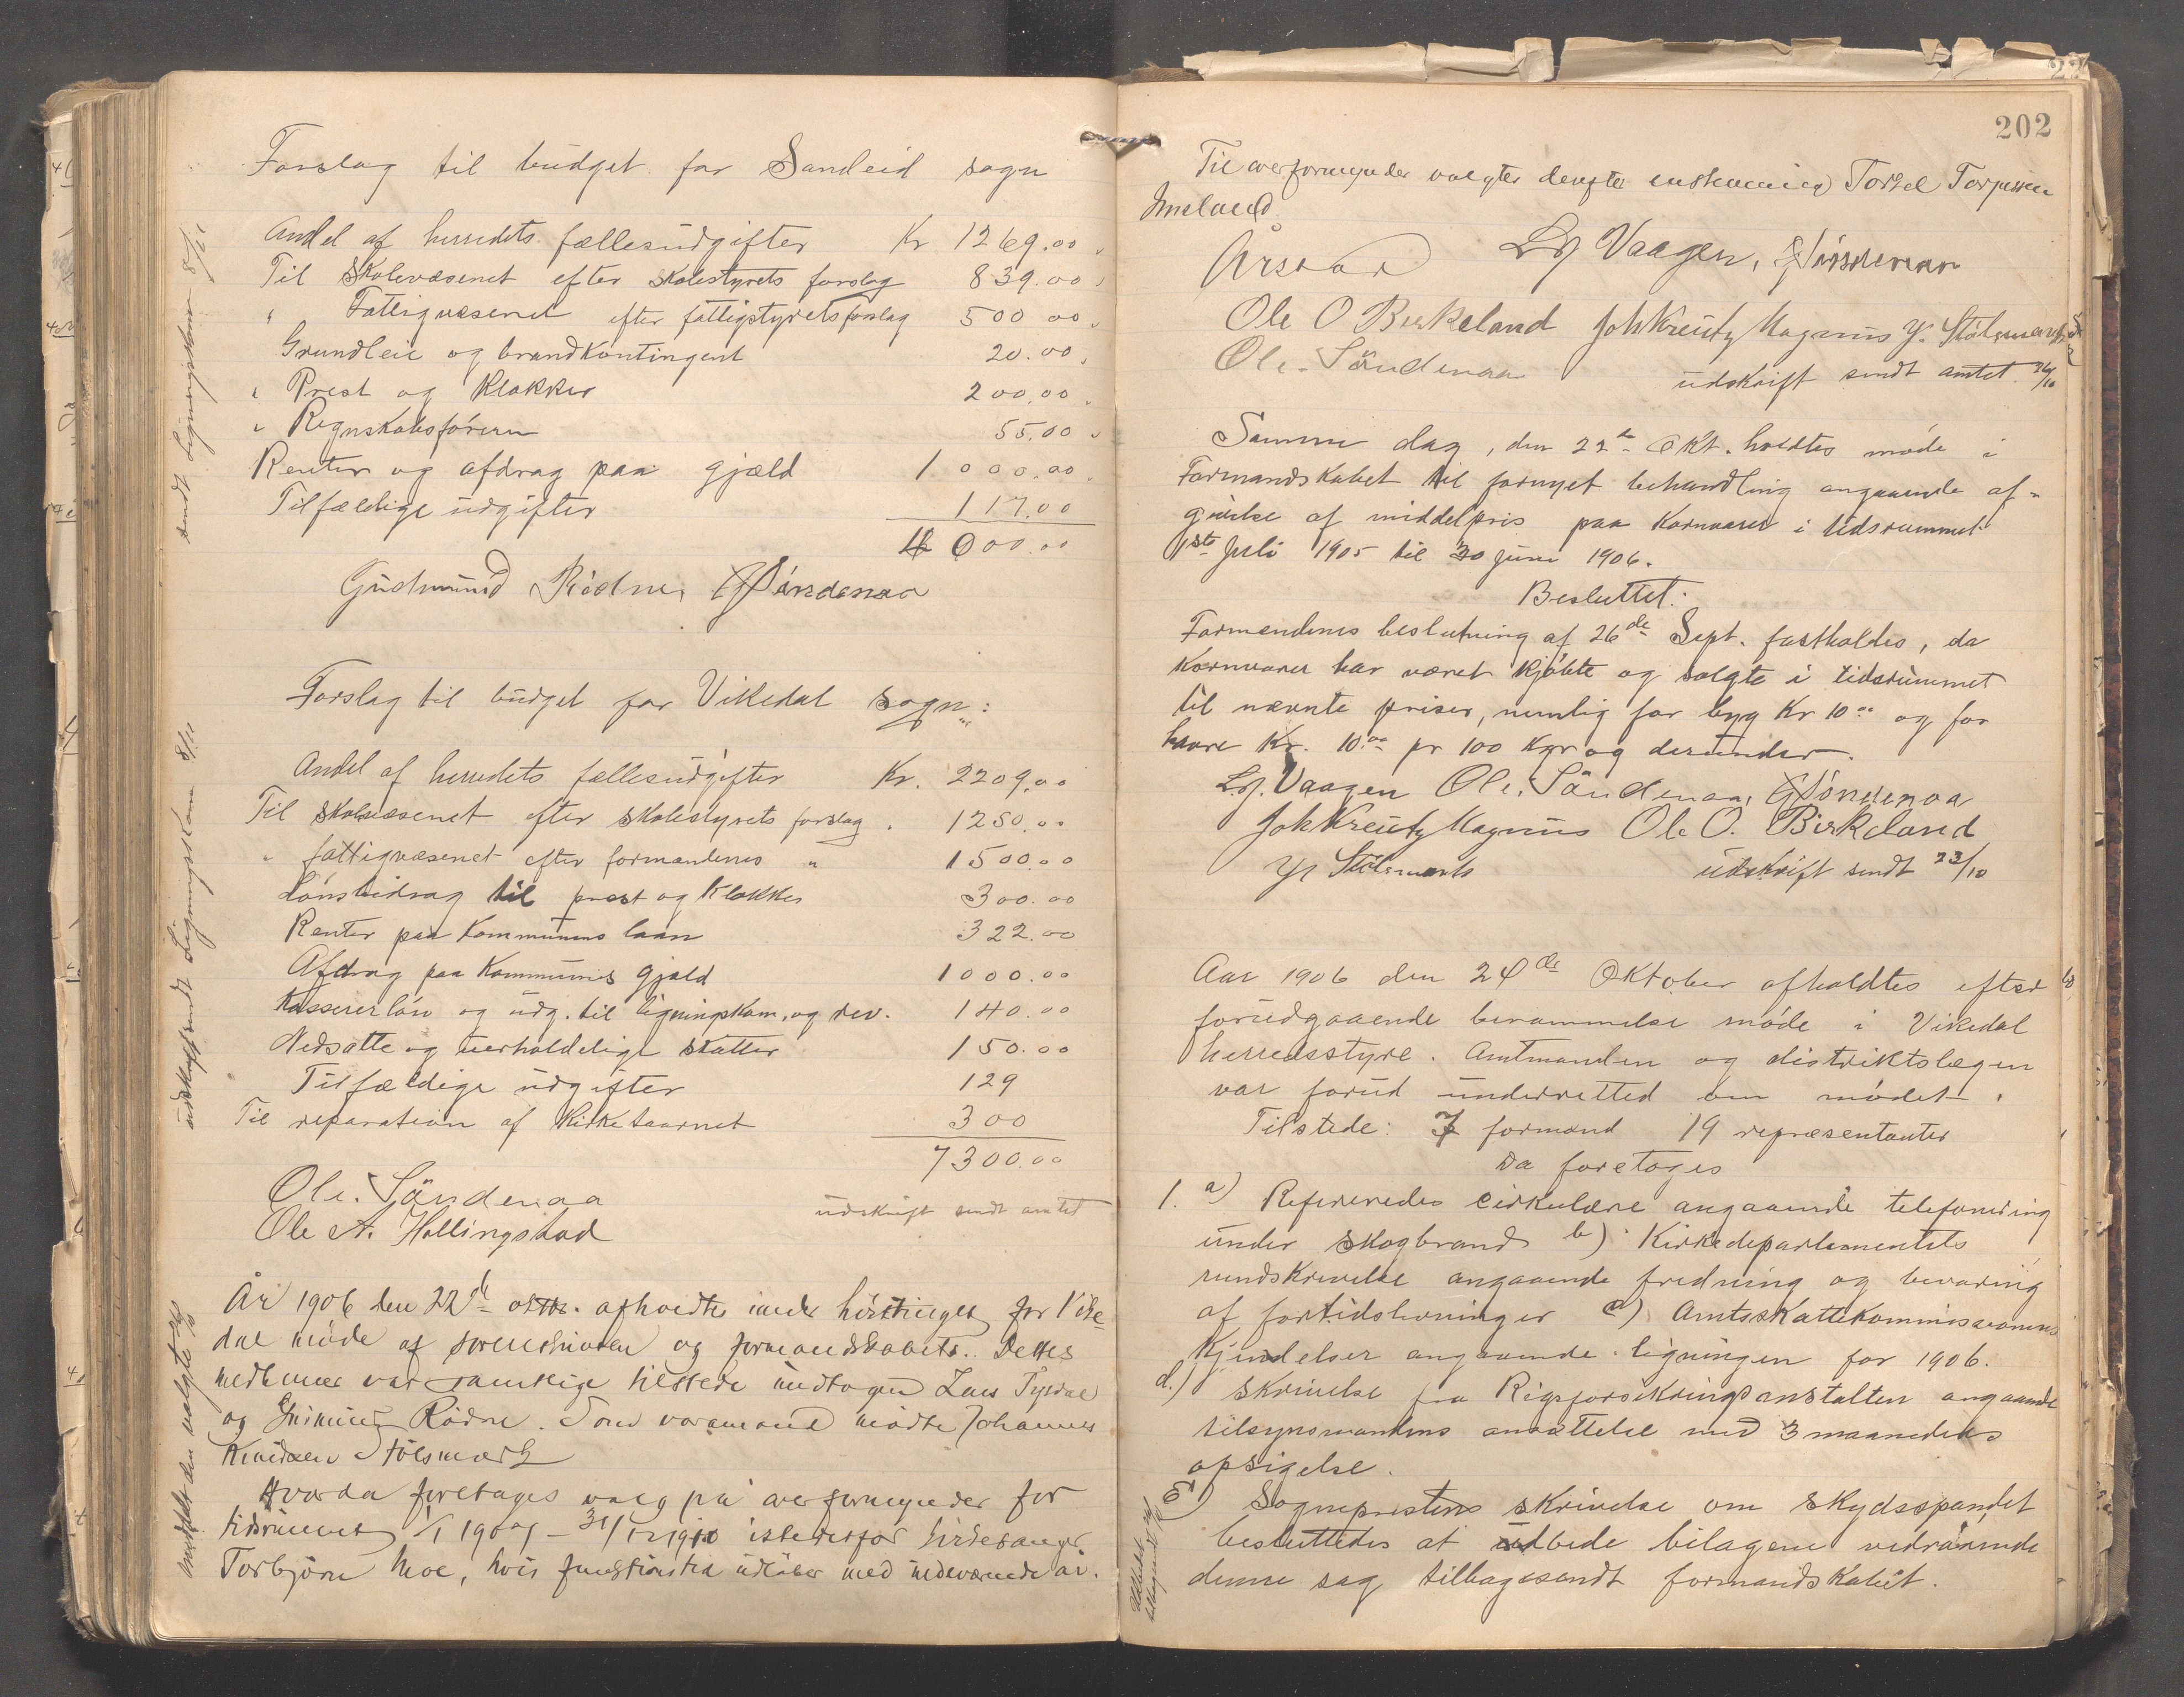 Forslag til budget for Sandeid sogn
Andel af herredets fællesudgifter Kr 1269.00
Til Skolevæsenet efter skolestyrets forslag 839.00
" Fattigvæsenet efter fattigstyrets forslag 500 00
Grundleie og brandkontingent 20.00
" Prest og Klokker 200.00
" Regnskabsføreren 55.00
Renter og afdrag paa gjæld 1000.00
Tilfældige udgifter 117.00
4000.00
Gudmund Rødne, Søndenaa
Forslag til budget for Vikedal sogn:
Andel af herredets fællesudgifter Kr. 2209.00
Til skolevæsenet efter skolestyrets forslag " 1250.00
" fattigvæsenet efter formændenes " 1500.00
Lønsbidrag til prest og klokker 300.00
Renter paa Kommunens laan 322.00
Afdrag paa Kommunes gjæld 1000.00
Kassererløn og udg. til ligningskom. og rev. 140.00
Nedsatte og uerholdelige skatter 150.00
Tilfældige udgifter 129
Til reparation af Kirketaarnet 300
7300.00
Ole. Søndenaa
Ole A. Hollingstad
udskrift sendt amtet
År 1906 den 22d oktbr. afholdtes under høsttinget for Vike-
dal møde af sorenskriveren og formandskabet. Dettes
medlemmer var samtlige tilstede undtagen Lars Tysdal
og Gudmund Rødne. Som varamand mødte Johannes
Knudsen Stølsmark
Hvorda foretages valg på overformynder for
tidsrummet 1/1 1907 – 31/12 1910 istedetfor
Torbjørn Moe, hvis funktionstid udløber med indeværende år.
sendt Ligningskom 8/11
udskrift sendt Ligningskom 8/11
den valgte
202
Til overformynder valgtes derefter enstemmig Torkel Torjussen
Imsland.
L. J. Vaagen, Søndenaa
Ole O Birkeland Joh Kreutz Magnus Stølsmark
Ole. Søndenaa
udskrift sendt amtet 24/10
Samme dag, den 22de Okt. holdtes møde i
Formandskabet til fornyet behandling angaaende af-
givelse af middelpris paa Kornvarer i tidsrummet
1ste Juli 1905 til 30 Juni 1906.
Besluttet:
Formændenes beslutning af 26de Sept. fastholdes, da
kornvarer har været kjøbte og solgte i tidsrummet
til nævnte priser, nemlig for byg Kr 10.00 og for
havre Kr. 10.00 pr 100 Kgr og derunder.
L. J. Vaagen Ole. Søndenaa, Søndenaa
Joh Kreutz Magnus Ole O. Birkeland
Stølsmark udskrift sendt 23/10
Aar 1906 den 24de Oktober afholdtes efter
forudgaaende berammelse møde i Vikedal
herredsstyre. Amtmanden og distriktslægen
var forud underretted om mødet.
Tilstede: 7 formænd 19 repræsentanter
Da foretoges
1. a) Refereredes cirkulære angaaende telefonering
under skogbrand b) Kirkedepartementets
rundskrivelse angaaende fredning og bevaring
af fortidslevninger c) Amtsskattekommissionens
Kjendelser angaaende ligningen for 1906.
d.) Skrivelse fra Rigsforsikringsanstalten angaaende
tilsynsmandens ansættelse med 3 maaneders
opsigelse.
e) Sogneprestens skrivelse om skydsspandet
besluttedes at udbede bilagene vedrørende
denne sag tilbagesendt formandskabet.